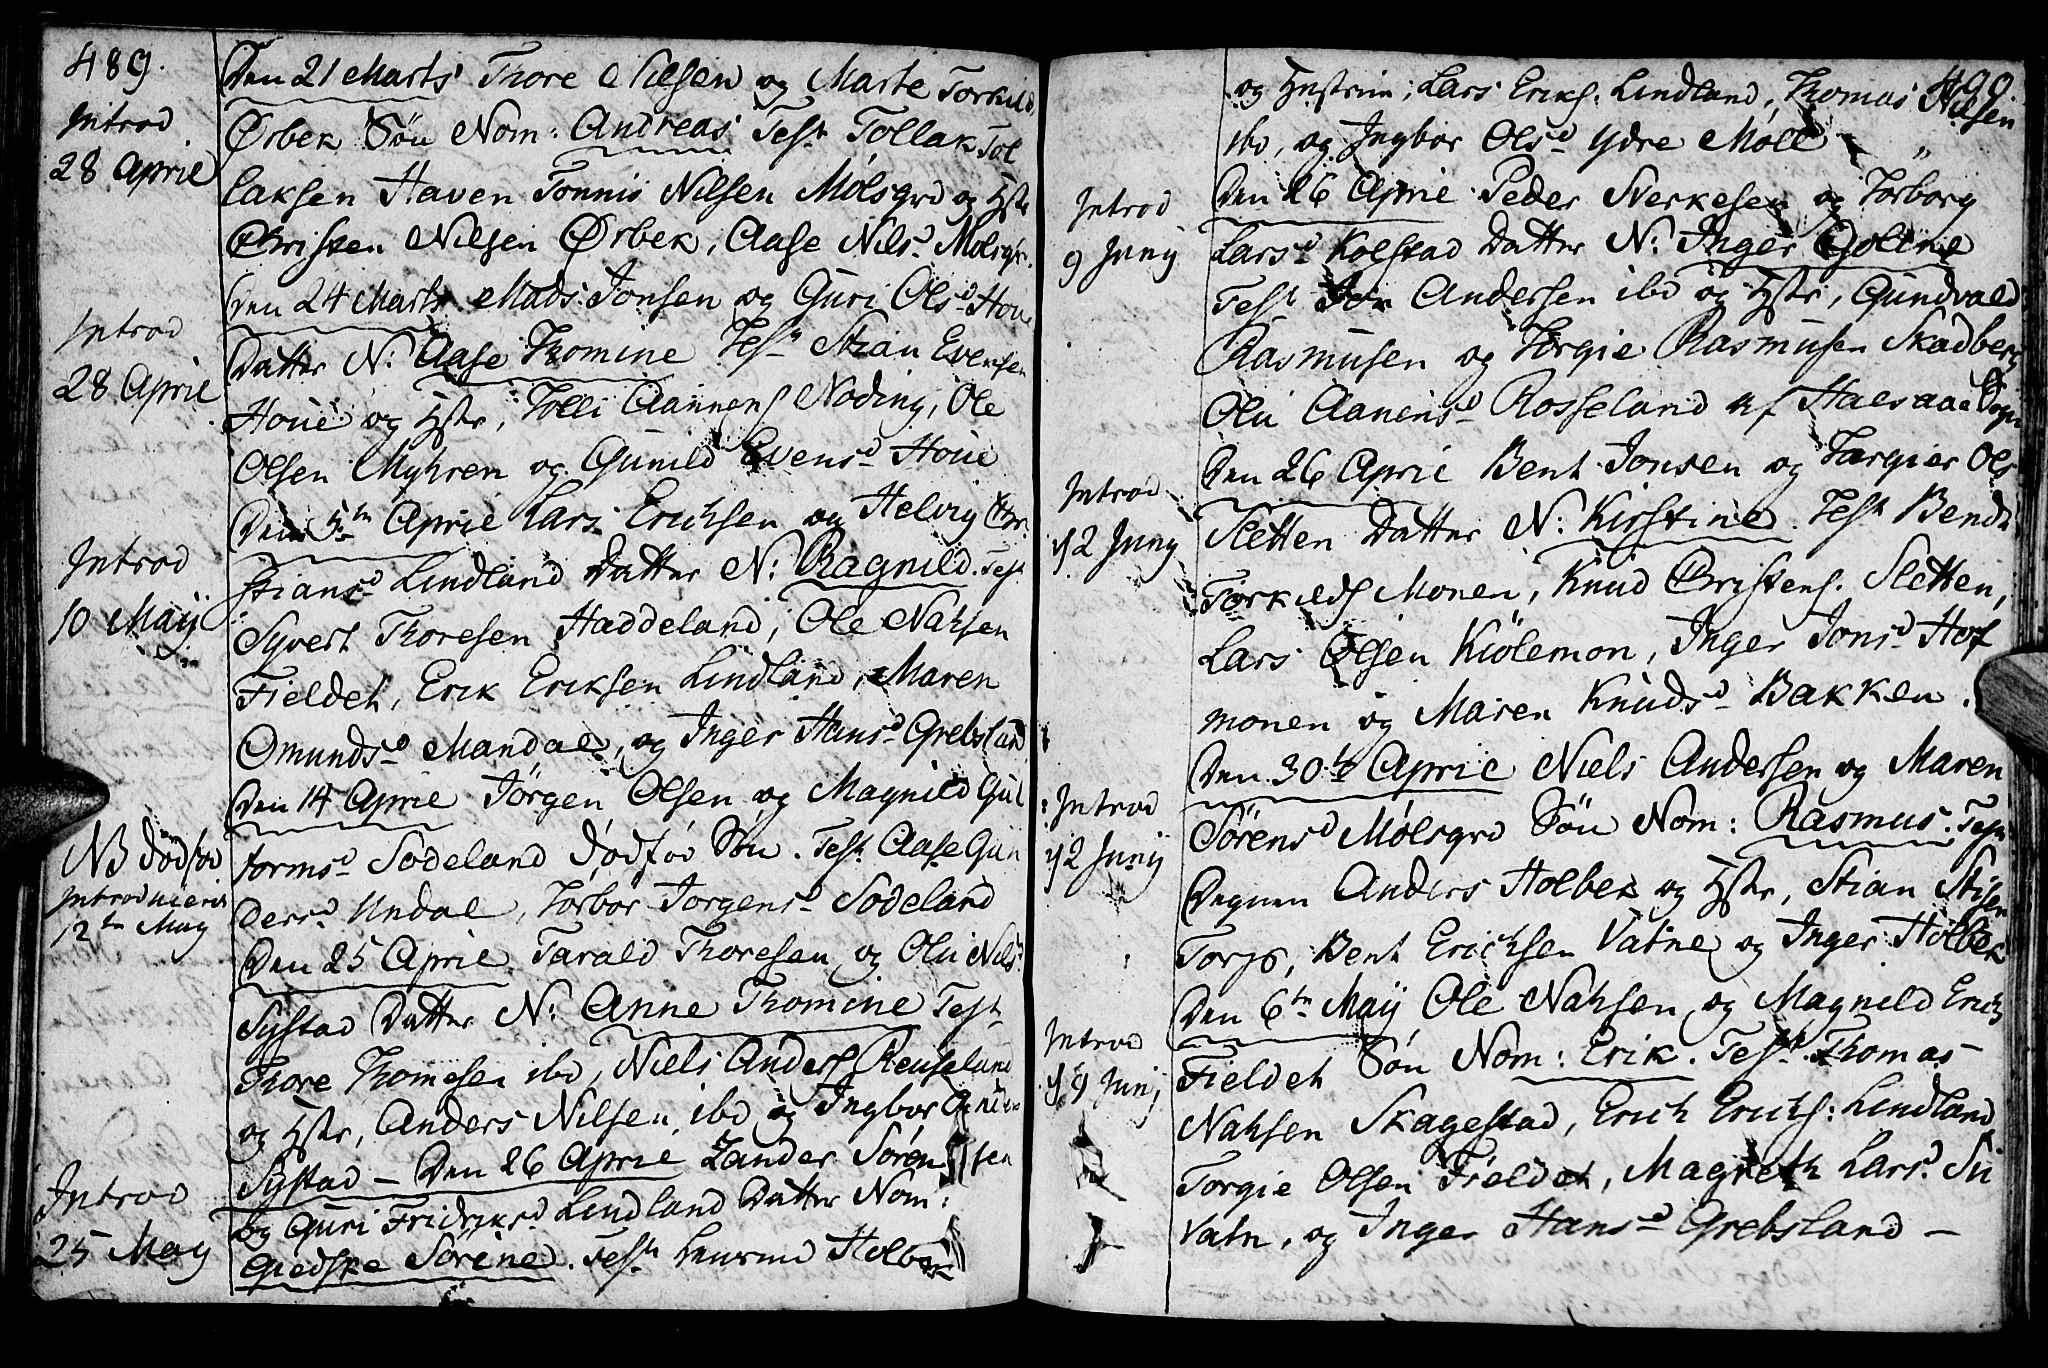 489.
Introd
28 April
Den 21 Marts Thore Nilsen og Marte Torkild
Ørbek Søn Nom: Andreas Test Tollak Tol
laksen Haven Tønnis Nilsen Mölsgrd og Hstr
Christen Nilsen Ørbek, Aase Nilsd Molsgr.
Introd
28 April
Den 24 Marts Mads Jonsen og Guri Olsd Houe
Datter N: Aase Thomine Test Stian Evensen
Houe og Hstr, Tolli Aanens Noding, Ole
Olsen Myhren og Gunild Evensd Houe
Introd
10 Maij
Den 5te April Lars Erichsen og Helvig Chri
stiansd Lindland Datter N: Ragnild. Test
Syvert Thoresen Haddeland, Ole Nahsen
Fieldet, Erik Eriksen Lindland, Maren
Omundsd Mandal, og Inger Hansd Grebsland
NB dødfød
Introduceris
12te May
Den 14 April Jörgen Olsen og Magnild Gut
tormsd Sodeland dødfød Søn. Test Aase Gun
dersd Undal, Torbor Jorgensd Sodeland
Den 25 April Tarald Thoresen og Olu Nilsd
Systad Datter N: Anne Thomine Test
Thore Thomesen ibd, Niels Anders Reuseland
og Hstr, Anders Nilsen ibd og Ingbor
Introd
25 May
Systad - Den 26 April Zander Sörensen
og Guri Fridriksd Lindland Datter Nom:
Giedske Sörine. Test Holbek
490.
og Hustrue; Lars Eriks: Lindland, Thomas Nilsen
ibd, og Ingbor Olsd Ydre Möll
Introd
9 Junij
Den 26 April Peder Nerkesen og Torborg
Larsd Kolstad Datter N: Inger Goline
Test Jon Andersen ibd og Hstr, Gundvald
Rasmusen og Torgie Rasmusen Skadberg
Olu Aanensd Rosseland af Halsaae Sogn
Introd
12 Junij
Den 26 April Bent Jonsen og Torgier Ols
Sletten Datter N: Kirstine. Test Bendt
Torkilds Monen, Knud Christens. Sletten,
Lars Olsen Kiölemon, Inger Jonsd Hof
monen og Maren Knudsd Bakken.
Introd
12 Junij
Den 30te April Niels Andersen og Maren
Sörensd Mölsgrd Søn Nom: Rasmus. Test
Degnen Anders Holbek og Hstr, Stian Stisen
Torp, Bent Erichsen Vatne og Inger Holbek
Introd
19 Junij
Den 6te Maij Ole Nahsen og Magnild Erichs
Fieldet Søn Nom: Erik. Test Thomas
Nahsen Skagestad, Erich Erichs: Lindland
Torgie Olsen Fieldet, Magreth Larsd Su
Vatn, og Inger Hansd Grebsland -